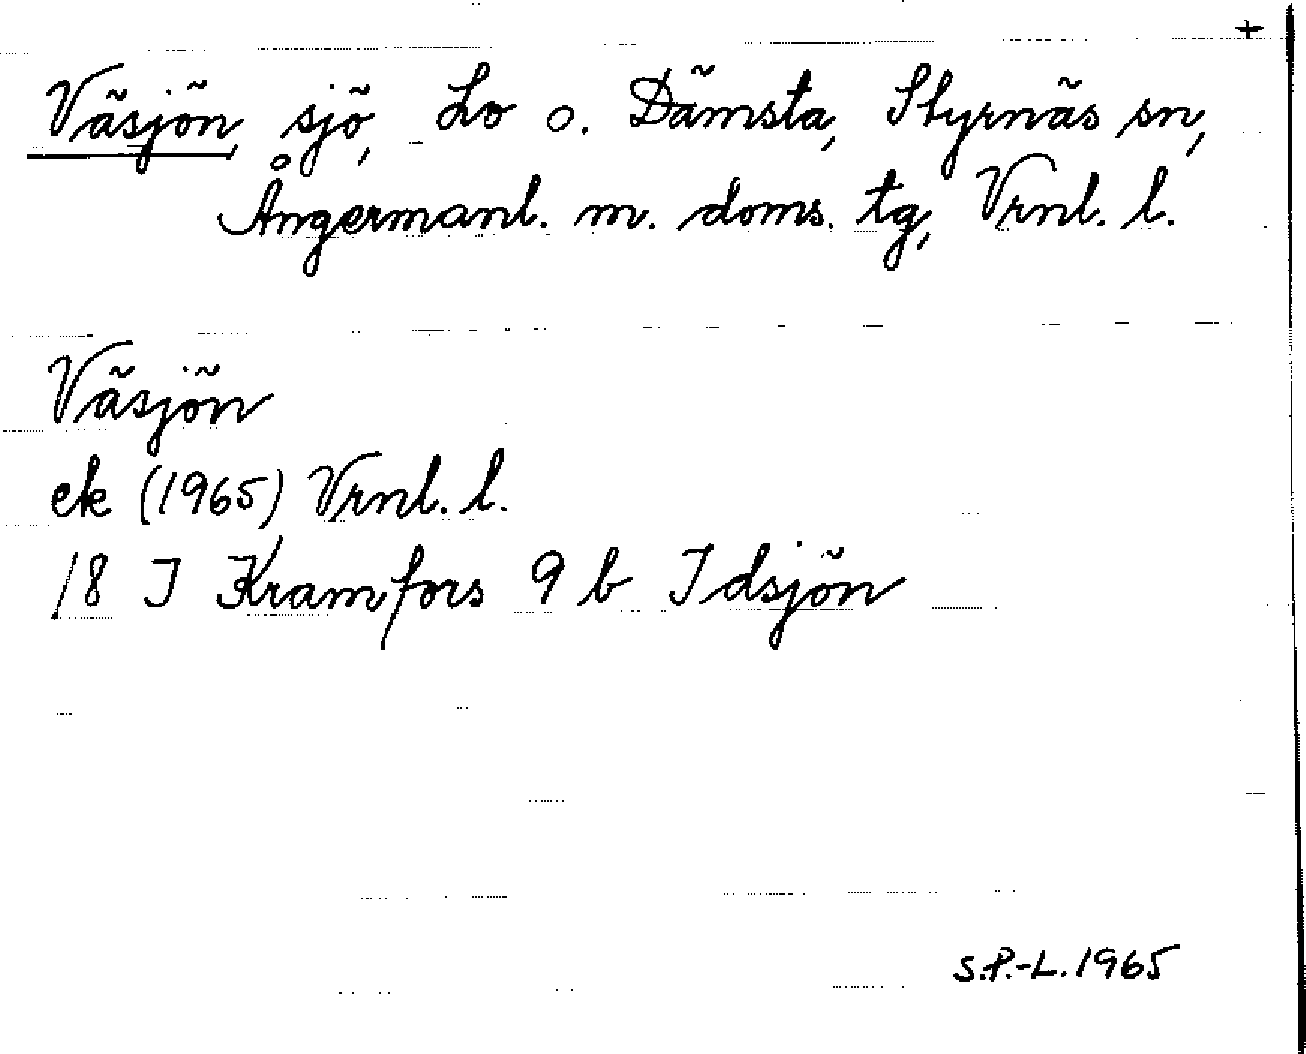 +
Väsjön, sjö, Lo o. Dämsta, Styrnäs sn,
Ångermanl. m. doms. tg, Vrnl. l.
Väsjön
ek (1965) Vrnl. l.
18 I Kramfors 9 b Idsjön
S.P.-L. 1965